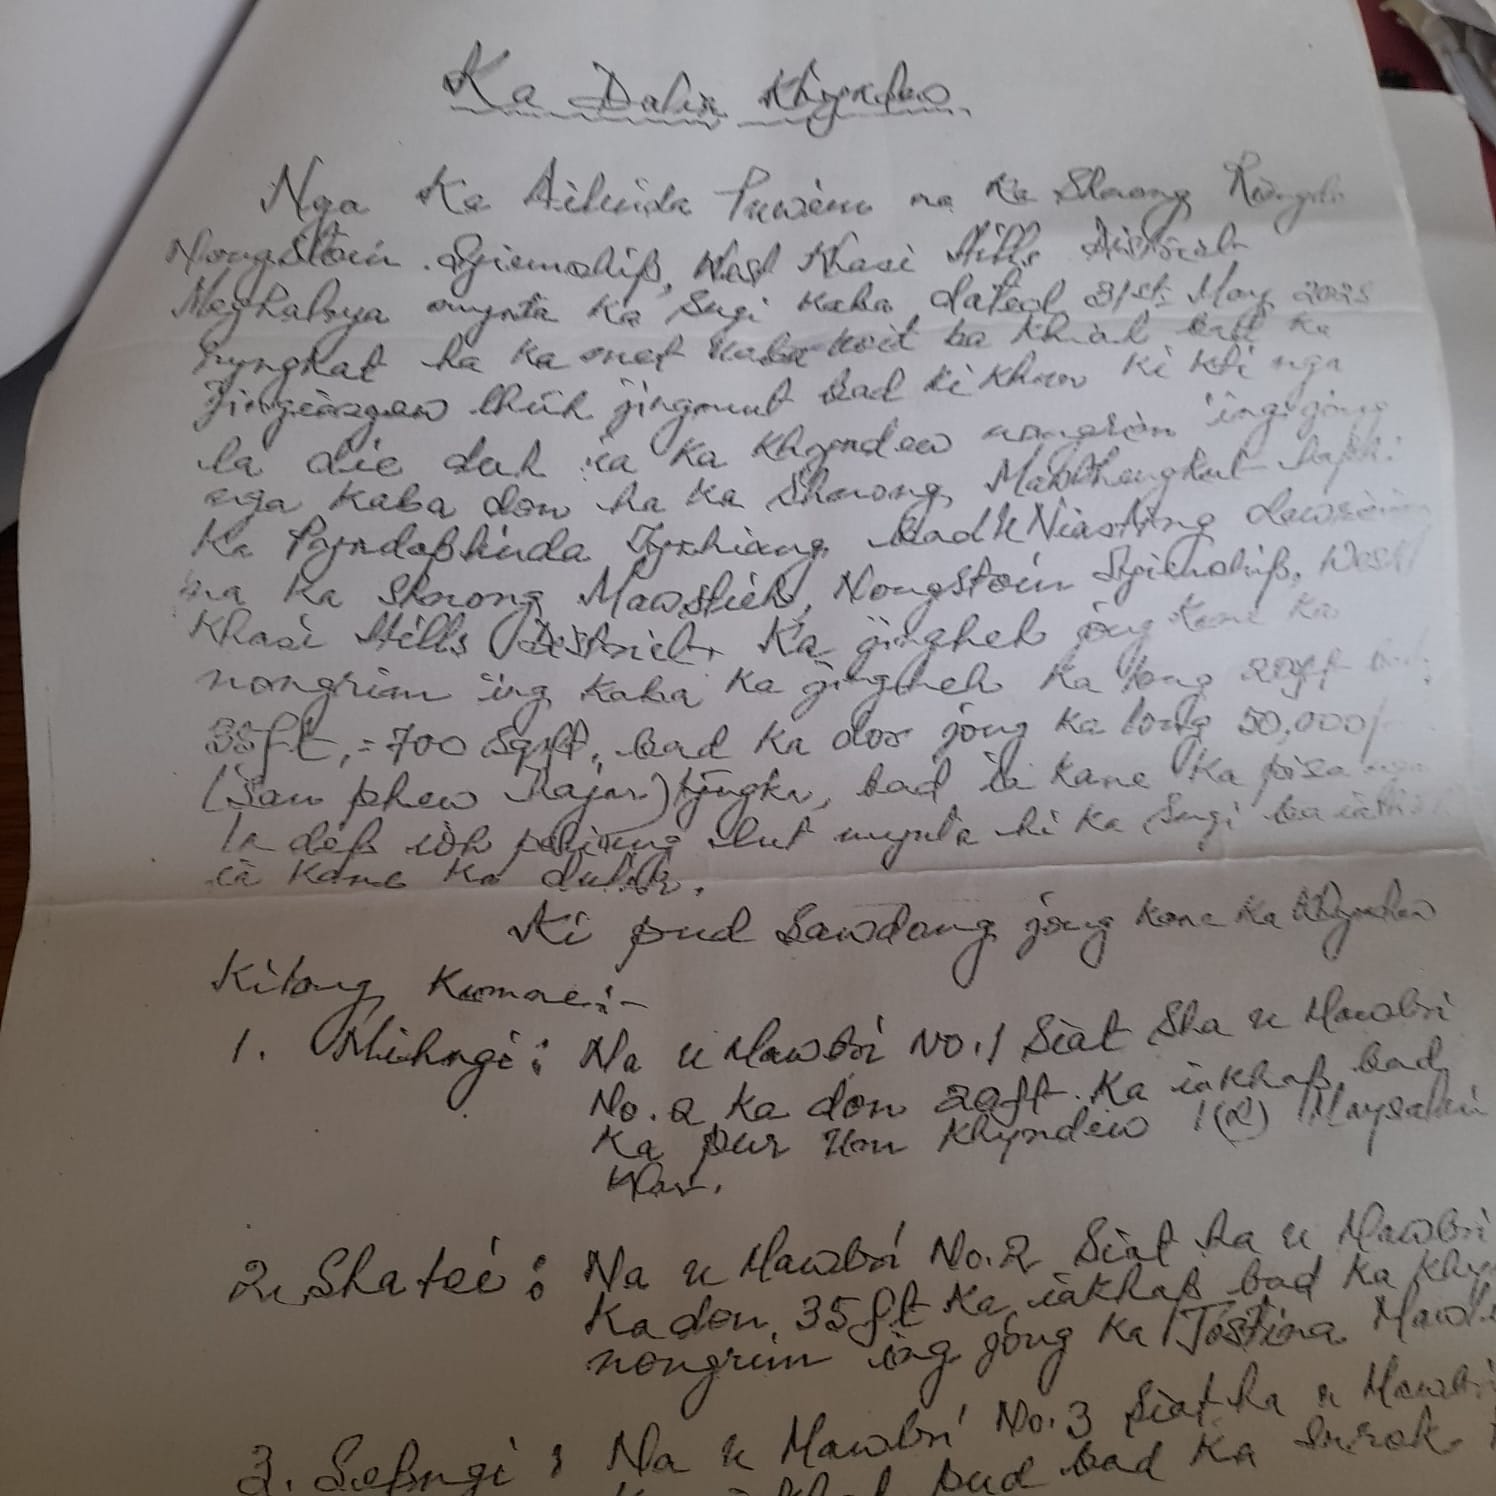 Ka Dalir Khyndew
Nga Ka Ailinda Puwein na Ka Shnong Rangdo
Nongstoin Syiemship, West Khasi Hills District
Meghalaya mynta ka Sngi kaba dated 31st May 2025
hyngkat ha ka met kaba koit ba khiah bad ka
Jingiasyaw thuh jingmut bad ki khun ki kti nga
la die duh ia ka khyndew nongrim ing jong
nga kaba don ha ka Shnong,
Ka Syrhiang bad U
na ka Shnong Mawstieh, Nongstoin Syiemship, West
Khasi Hills District. Ka jingheh jong kane ka
nongrim ing kaba ka jingheh ka long 20ft bad
35ft, = 700 Sqft, bad ka dor jong ka long 50,000/-
(San phew hajar) tyngka, bad ia kane ka pisa nga
la dep ioh lut mynta hi ka Sngi ba
ia kane ka dulir.
Ki pud Sawdong jong kane ka Khyndew
Kilong Kumne:-
1. Mihngi: Na u Mawbri No.1 Siat Sha u Mawbri
No.2 ka don 20ft. Ka iakhap bad
Ka pur um Khyndew 1(2)
Khar.
2. Shatei: Na u Mawbri No.2 Siat ha u Mawbri
Ka don 35ft Ka iakhap bad ka
nongrim ing jong Ka Jostina
3. Sepngi: Na u Mawbri No.3 Siat ha u Mawbri
bad ka Surok